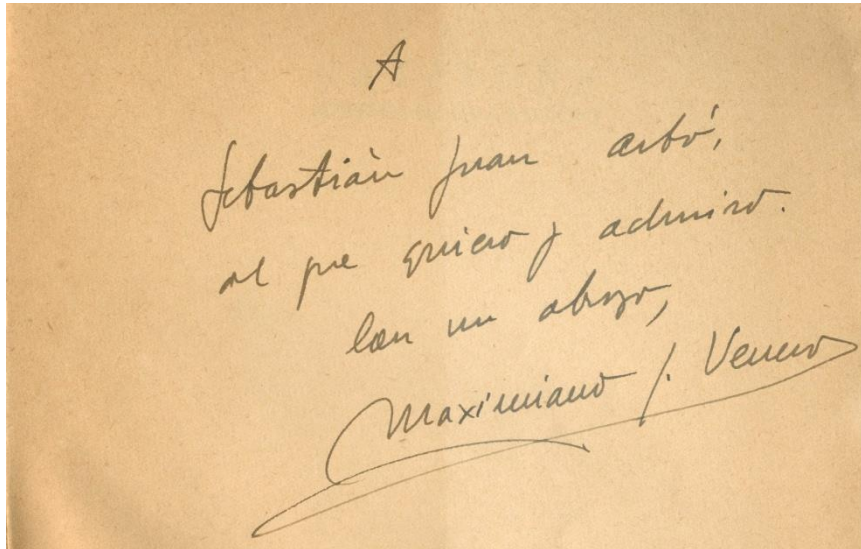 A
Sebastián Juan Arbó,
al que quiero y admiro.
Con un abrazo,
Maximiano G. Venero